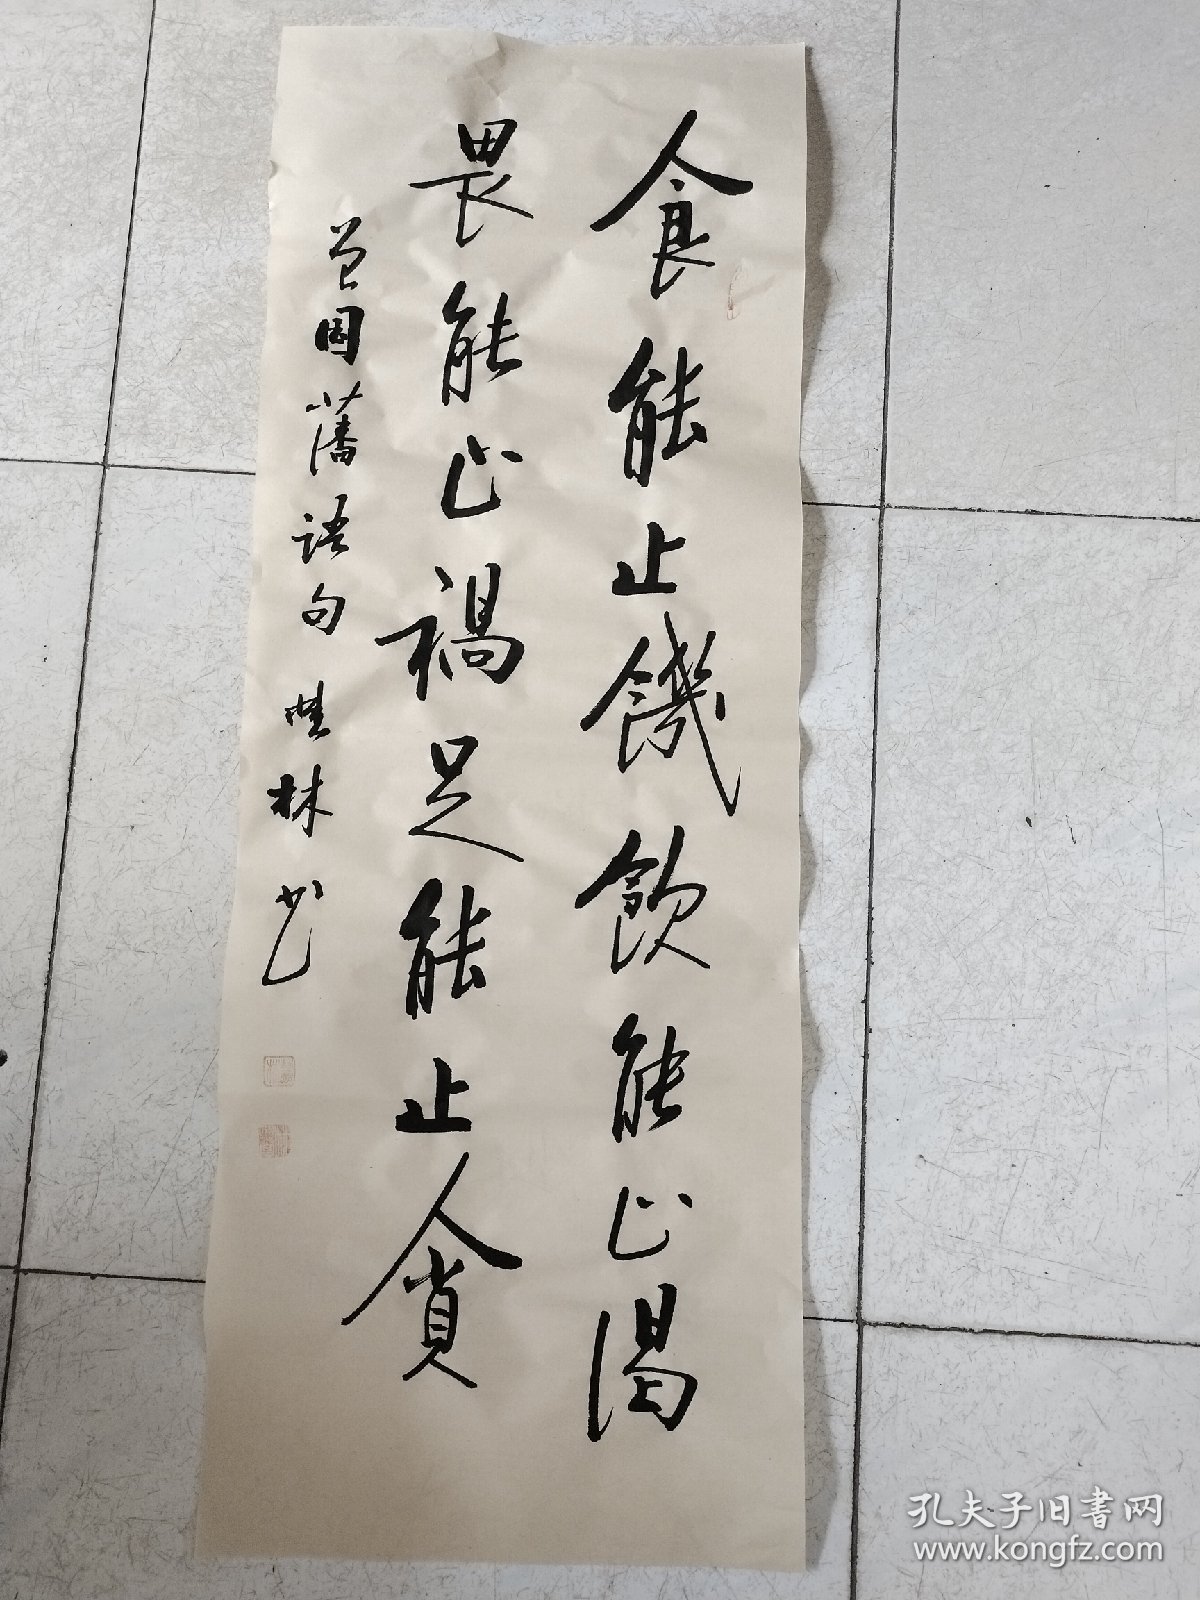 食能止饑飲能止渴
畏能止禍足能止貪
曾国藩语句 林书
孔夫子旧书网
www.kongfz.com